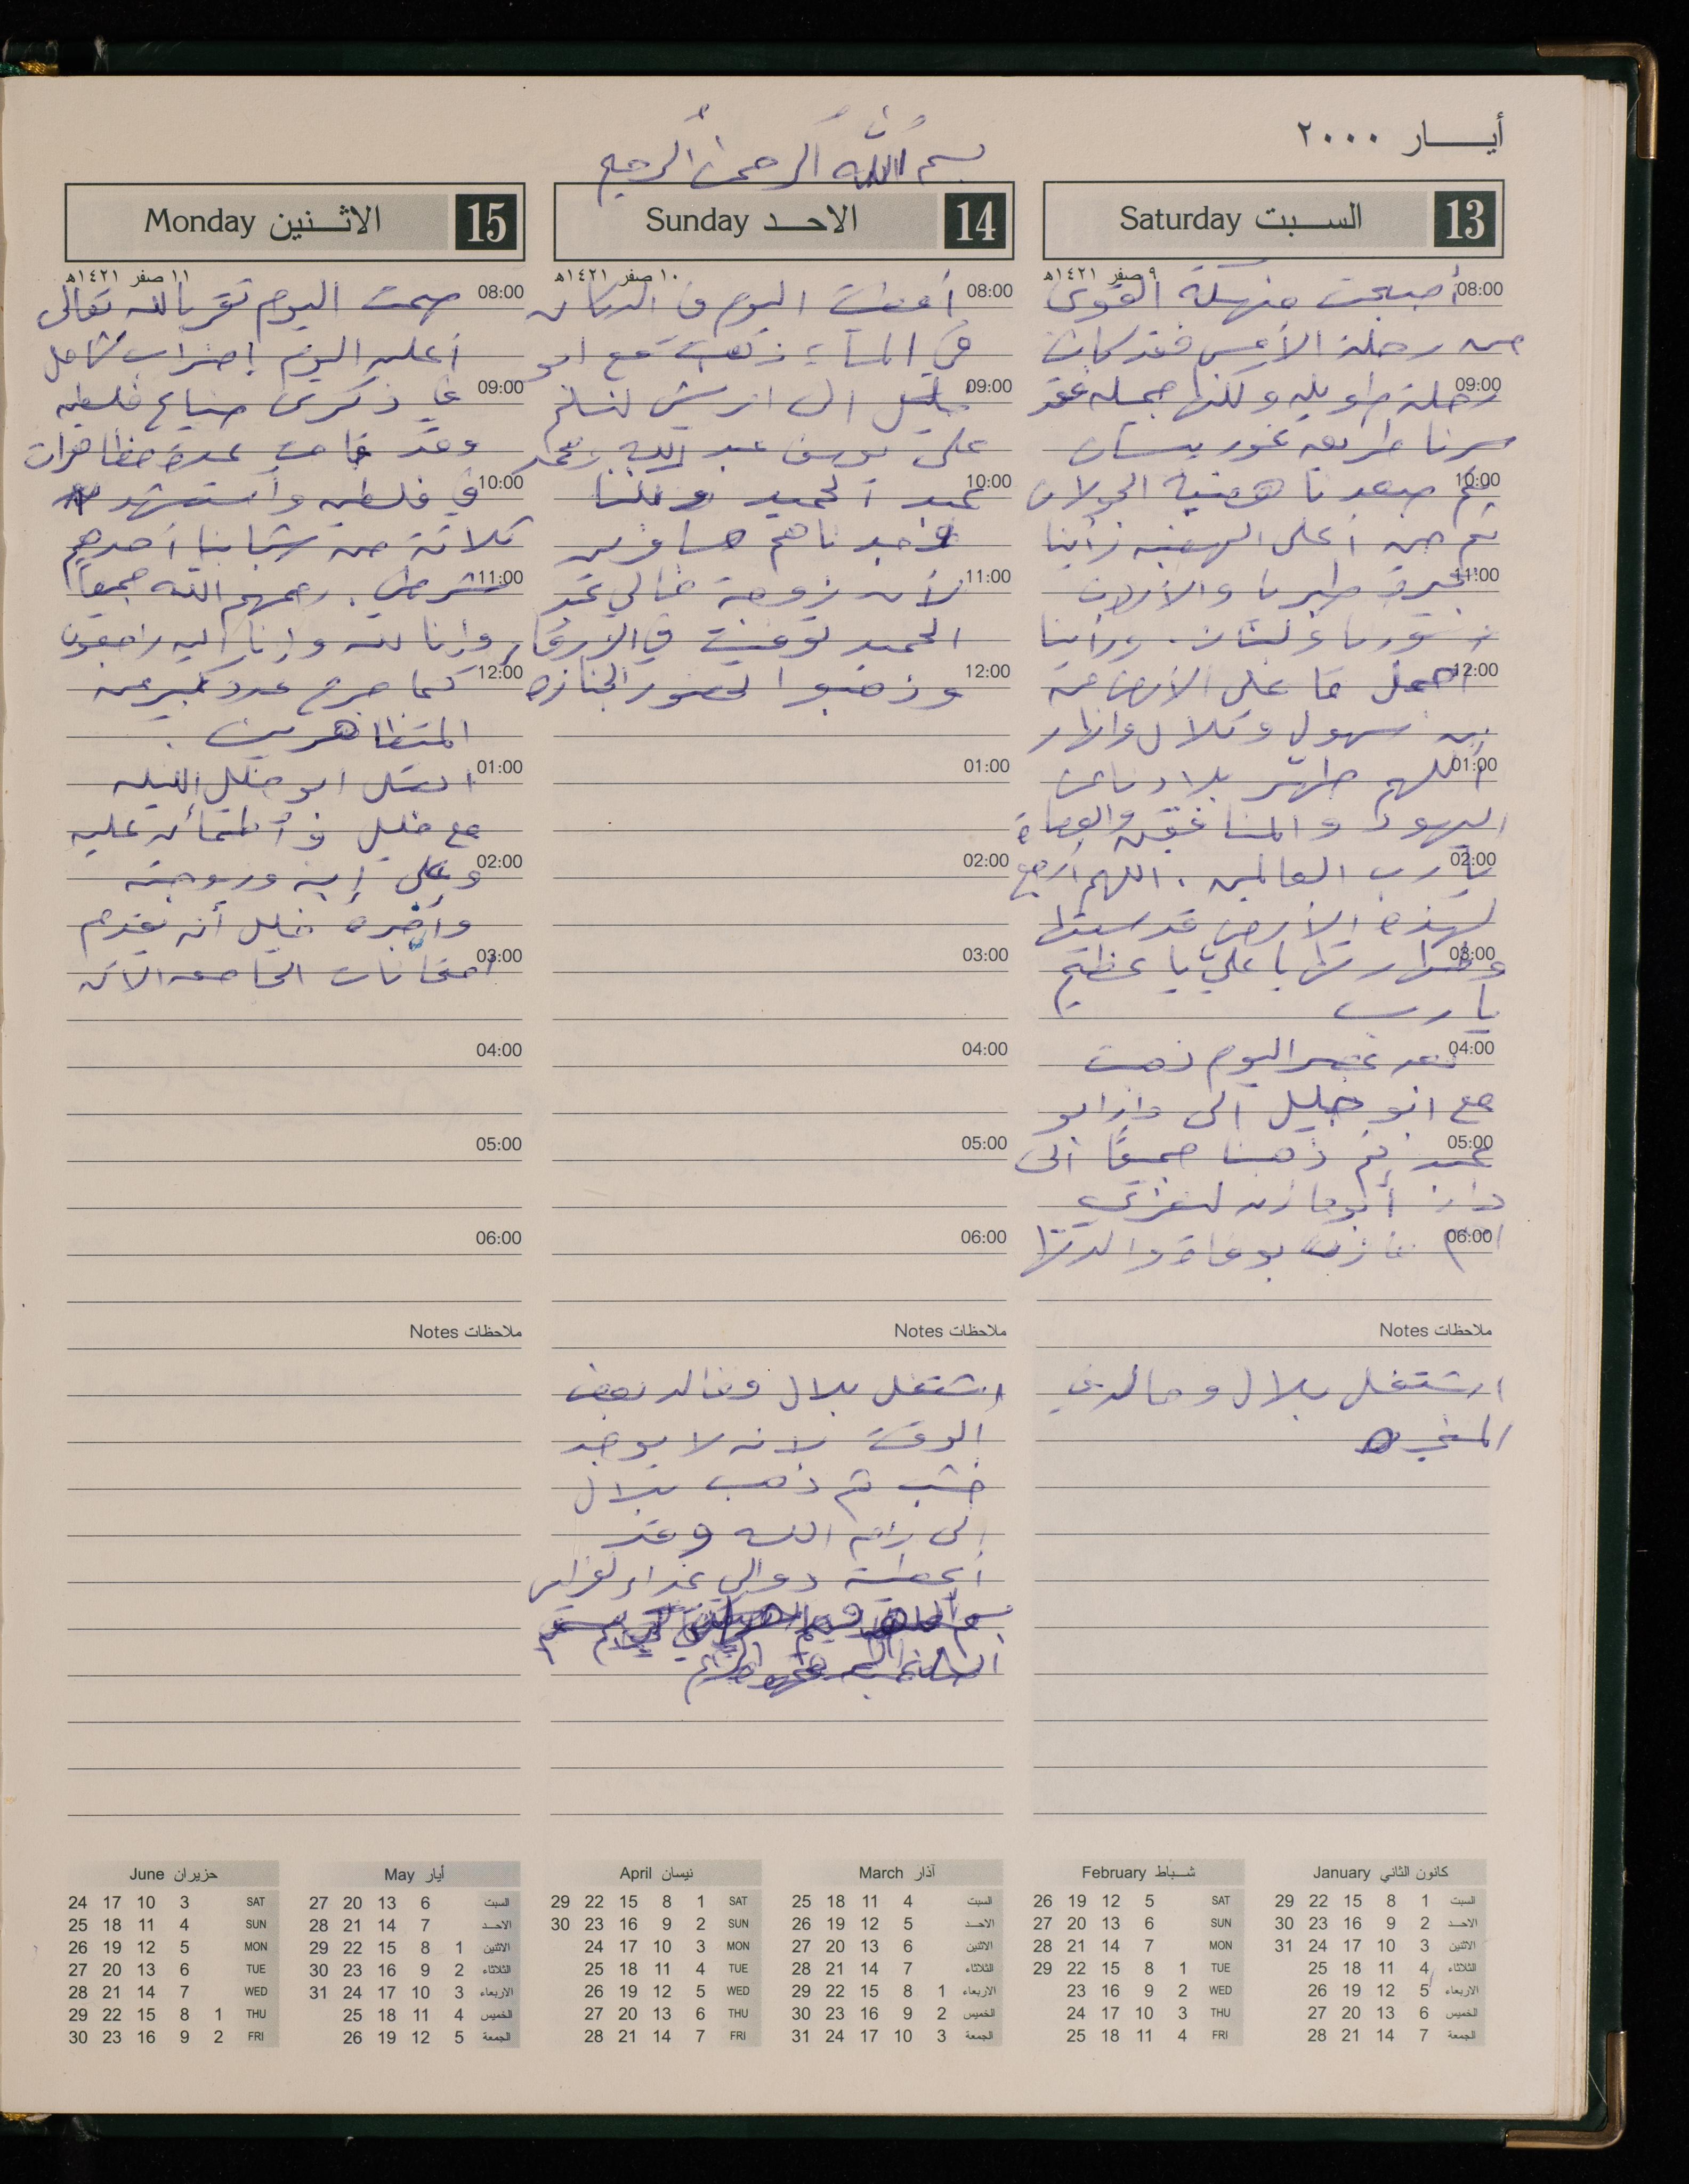 أيــار ٢٠٠٠
بسم الله الرحمن الرحيم
13 السبت Saturday
٩ صفر ١٤٢١هـ
08:00 أصبحت منهكة القوى
من رحلة الأمس فقد كانت
09:00 رحلة طويله ولكنها جميله فقد
سرنا طريق غور بيسان
10:00 ثم صعدنا هضبة الجولان
ثم من أعلى الهضبه رأينا
11:00 بحيرة طبريا والأردن
وسوريا ولبنان. ورأينا
12:00 أجمل ما على الأرض من
سهول وتلال وانهار
01:00 اللهم طهر بلادنا من
اليهود والمنافقين والعصاة
02:00 يا رب العالمين. اللهم ارجع
لهذه الأرض قدسيتها
03:00 وطهارتها يا علي يا عظيم
يا رب
04:00 بعد عصر اليوم ذهبت
مع ابو خليل الى دار ابو
05:00 ثم ذهبنا جميعًا الى
دار أبو مازن لنعزي
06:00 ام مازن بوفاة والدتها
ملاحظات Notes
اشتغل بلال وخالد في
المنجره
14 الاحد Sunday
١٠ صفر ١٤٢١هـ
08:00 أمضيت اليوم في الدكان
في المساء ذهبت مع ابو
09:00 خليل الى ادريس لنسلم
على يوسف عبد الله ومحمد
10:00 عبد الحميد ولكننا
وجدناهم مسافرين
11:00 لأن زوجة خالي عبد
الحميد توفيت في الزرقاء
12:00 وذهبوا لحضور الجنازه
01:00
02:00
03:00
04:00
05:00
06:00
ملاحظات Notes
اشتغل بلال وخالد بعض
الوقت لانه لا يوجد
خشب ثم ذهب بلال
إلى رام الله وقد
أعطيته دوالي غداء
15 الاثنين Monday
١١ صفر ١٤٢١هـ
08:00 صمت اليوم تقربا لله تعالى
أعلن اليوم إضراب شامل
09:00 في ذكرى ضياع فلسطين
وقد قامت عدة مظاهرات
10:00 في فلسطين واستشهد
ثلاثة من شبابنا أحدهم
11:00 شرطي. رحمهم الله جميعاً
وإنا لله وإنا إليه راجعون
12:00 كما جرح عدد كبير من
المتظاهرين.
01:00 اتصل ابو خليل الليله
مع خليل و أطمأن عليه
02:00 وعلى إبنه وزوجته
وأخبره خليل أنه يقدم
03:00 امتحانات الجامعه الآن
04:00
05:00
06:00
ملاحظات Notes
كانون الثاني January
السبت 1 8 15 22 29
الاحد 2 9 16 23 30
الاثنين 3 10 17 24 31
الثلاثاء 4 11 18 25
الاربعاء 5 12 19 26
الخميس 6 13 20 27
الجمعة 7 14 21 28
شـباط February
SAT 5 12 19 26
SUN 6 13 20 27
MON 7 14 21 28
TUE 1 8 15 22 29
WED 2 9 16 23
THU 3 10 17 24
FRI 4 11 18 25
آذار March
السبت 4 11 18 25
الاحد 5 12 19 26
الاثنين 6 13 20 27
الثلاثاء 7 14 21 28
الاربعاء 1 8 15 22 29
الخميس 2 9 16 23 30
الجمعة 3 10 17 24 31
نيسان April
SAT 1 8 15 22 29
SUN 2 9 16 23 30
MON 3 10 17 24
TUE 4 11 18 25
WED 5 12 19 26
THU 6 13 20 27
FRI 7 14 21 28
أيار May
السبت 6 13 20 27
الاحد 7 14 21 28
الاثنين 1 8 15 22 29
الثلاثاء 2 9 16 23 30
الاربعاء 3 10 17 24 31
الخميس 4 11 18 25
الجمعة 5 12 19 26
حزيران June
SAT 3 10 17 24
SUN 4 11 18 25
MON 5 12 19 26
TUE 6 13 20 27
WED 7 14 21 28
THU 1 8 15 22 29
FRI 2 9 16 23 30